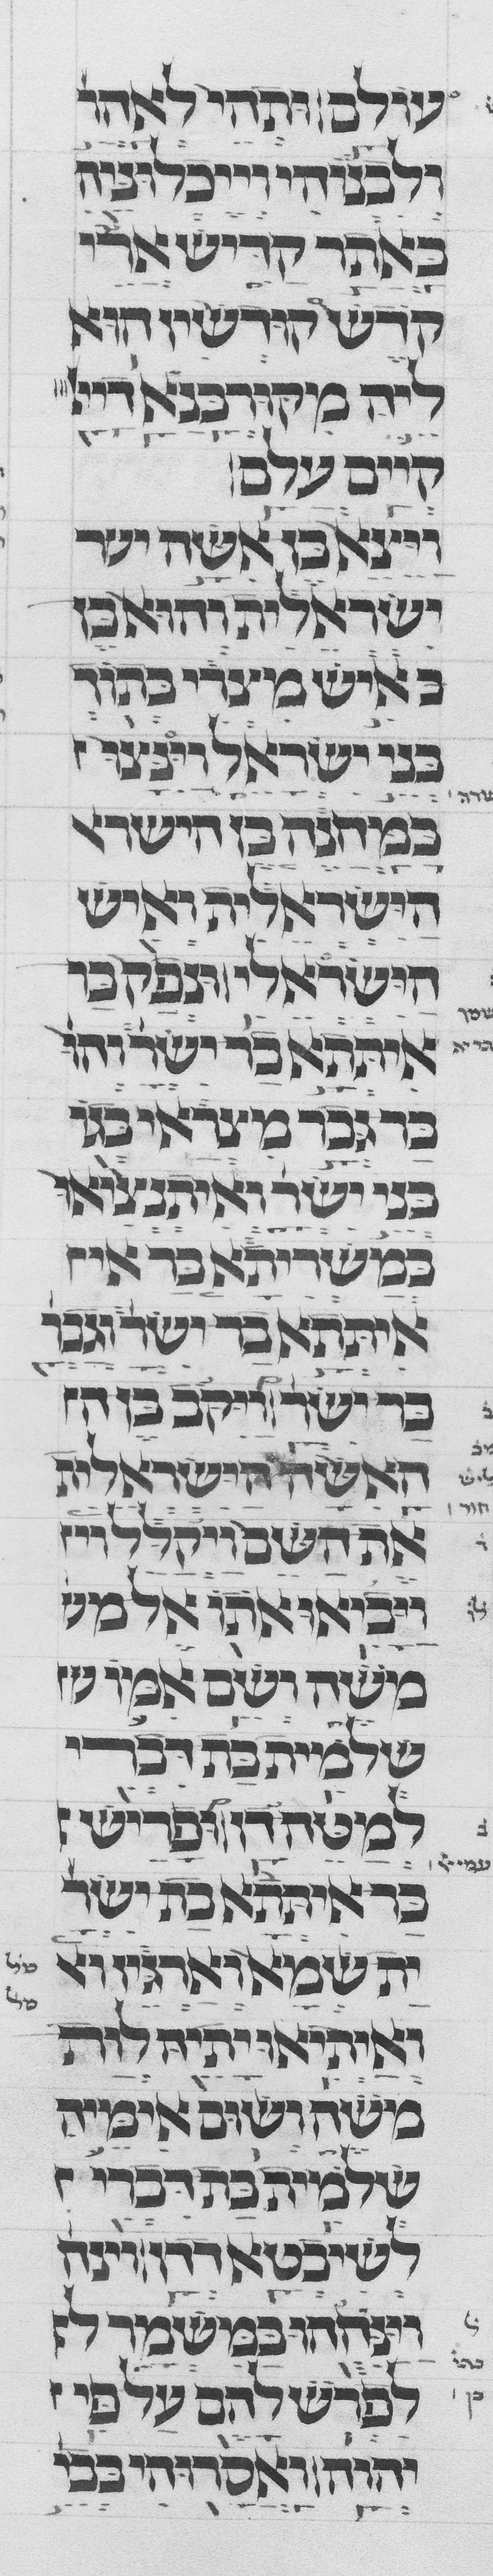 עולם ותהי לאהר
ולבנוהי וייכלוניה
באתר קדיש ארי
קדש קודשין הוא
ליה מקורבנא דייי
קיים עלם
ויצא בן אשה ישר
ישראלית והוא בן
ב איש מצרי בתוך
בני ישראל וינצו
במחנה בן הישרא
הישראלית ואיש
הישראלי ונפק בר
איתתא בר ישר והו
בר גבר מצראי בגו
בני ישר ואיתנציאו
במשריתא בר אי
איתתא בר ישר וגבר
בר ישר ויקב בן ה
האשה הישראלית
את השם ויקלל וי
ויביאו אתו אל מש
משה ושם אמו ש
שלמית בת דברי
למטה דן ופריש
בר איתתא בת ישר
ית שמא וארגיז וא
ואיתיאו יתיה לות
משה ושום אימיה
שלמית בת דברי
לשיבטא דדן וינח
וינחהו במשמר ל
לפרש להם על פי
יהוה ואסרוהי בבי